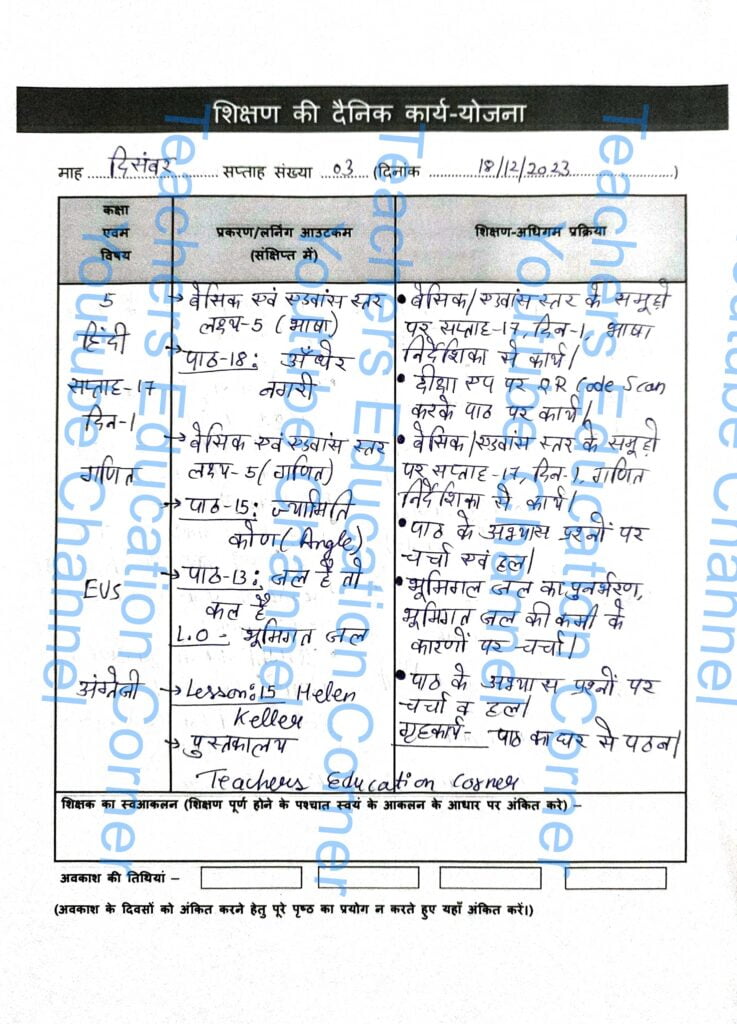 शिक्षण की दैनिक कार्य-योजना
माह ... दिसंबर ... सप्ताह संख्या .. 03 ... (दिनांक ... 18/12/2023 ...)
कक्षा
एवम
विषय
प्रकरण/लर्निंग आउटकम
(संक्षिप्त में)
शिक्षण-अधिगम प्रक्रिया
5
हिंदी
सप्ताह-17
दिन-1
→ बेसिक एवं एडवांस स्तर
लक्ष्य-5 (भाषा)
→ पाठ-18: अँधेर
नगरी
• बेसिक/एडवांस स्तर के समूहों
पर सप्ताह-17, दिन-1, भाषा
निर्देशिका से कार्य।
• दीक्षा एप पर QR Code Scan
करके पाठ पर कार्य।
गणित
→ बेसिक एवं एडवांस स्तर
लक्ष्य-5 (गणित)
→ पाठ-15: ज्यामिति
कोण (Angle)
• बेसिक/एडवांस स्तर के समूहों
पर सप्ताह-17, दिन-1, गणित
निर्देशिका से कार्य।
• पाठ के अभ्यास प्रश्नों पर
चर्चा एवं हल।
EVS
→ पाठ-13: जल है तो
कल है
L.O - भूमिगत जल
• भूमिगत जल का पुनर्भरण,
भूमिगत जल की कमी के
कारणों पर चर्चा।
अंग्रेजी
→ Lesson:15 Helen
Keller
→ पुस्तकालय
• पाठ के अभ्यास प्रश्नों पर
चर्चा व हल।
गृहकार्य- पाठ का घर से पठन।
Teachers Education Corner
शिक्षक का स्वआकलन (शिक्षण पूर्ण होने के पश्चात स्वयं के आकलन के आधार पर अंकित करे) –
अवकाश की तिथियां –
(अवकाश के दिवसों को अंकित करने हेतु पूरे पृष्ठ का प्रयोग न करते हुए यहाँ अंकित करें।)
Teachers Education Corner
Youtube Channel
Teachers Education Corner
Youtube Channel
Teachers Education Corner
Youtube Channel